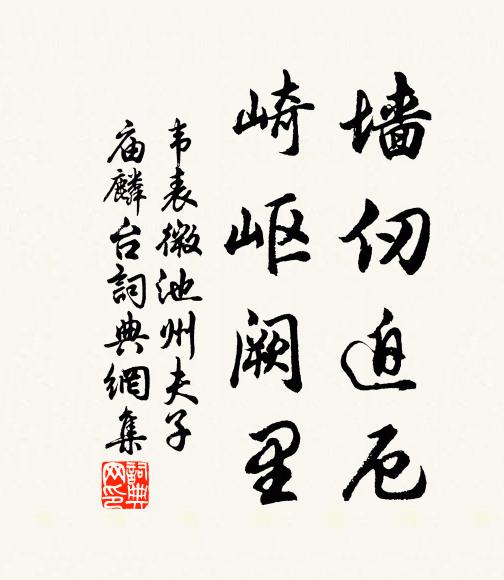 墙仞迫厄
崎岖阙里
韦表微池州夫子
庙麟台詞典網集